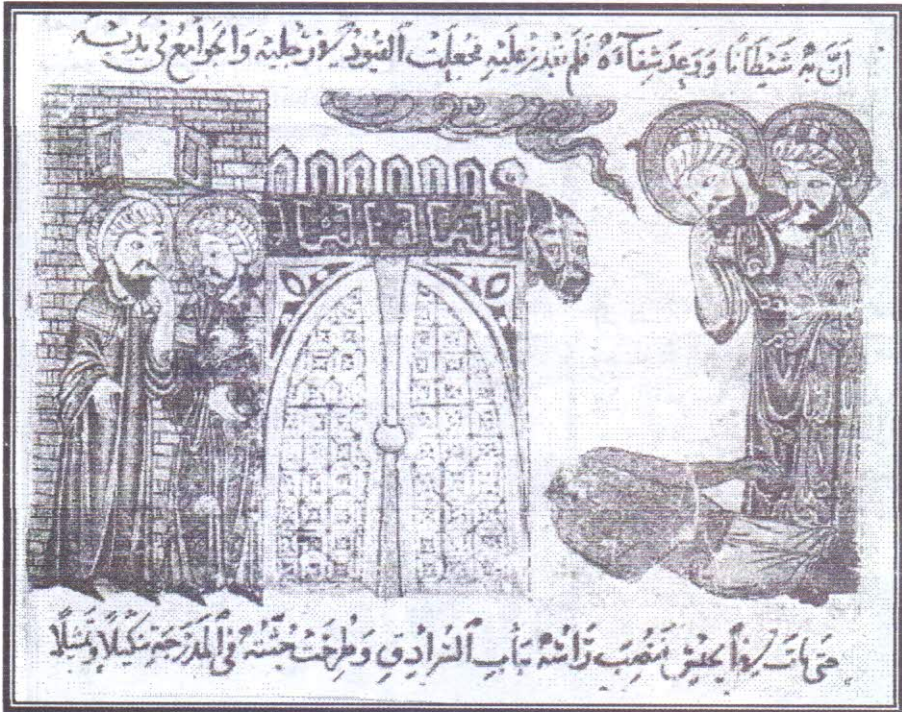 اَنَّ بِهِ شَيْطَانًا وَوَعَدَ شِفَآءَهُ فَلَم يَقدِر عَلَيْهِ فَجُعِلَتْ اَلقيُودُ فى رجليْهِ وَالجَوامعُ في يديْهِ
حتى ماتَ فى الحبْسِ فنُصِبَ رَاسُهُ بِبَابِ اَلسُّرادِقِ وَطُرِحَتْ جُثَّتُهُ في اَلمَدْرَجَةِ تنكيلًا وتمثيلًا